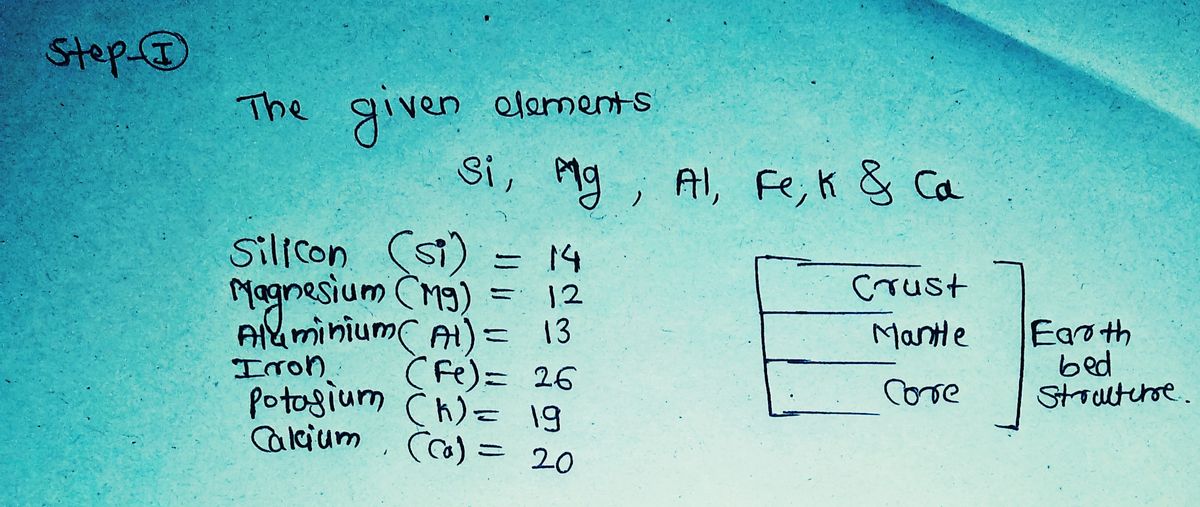 Step-I
The given elements
Si, Mg, Al, Fe, K & Ca
Silicon (Si) = 14
Magnesium (Mg) = 12
Aluminium (Al) = 13
Iron (Fe) = 26
Potasium (K) = 19
Calcium, (Ca) = 20
Crust
Mantle
Core
Earth
bed
Structure.